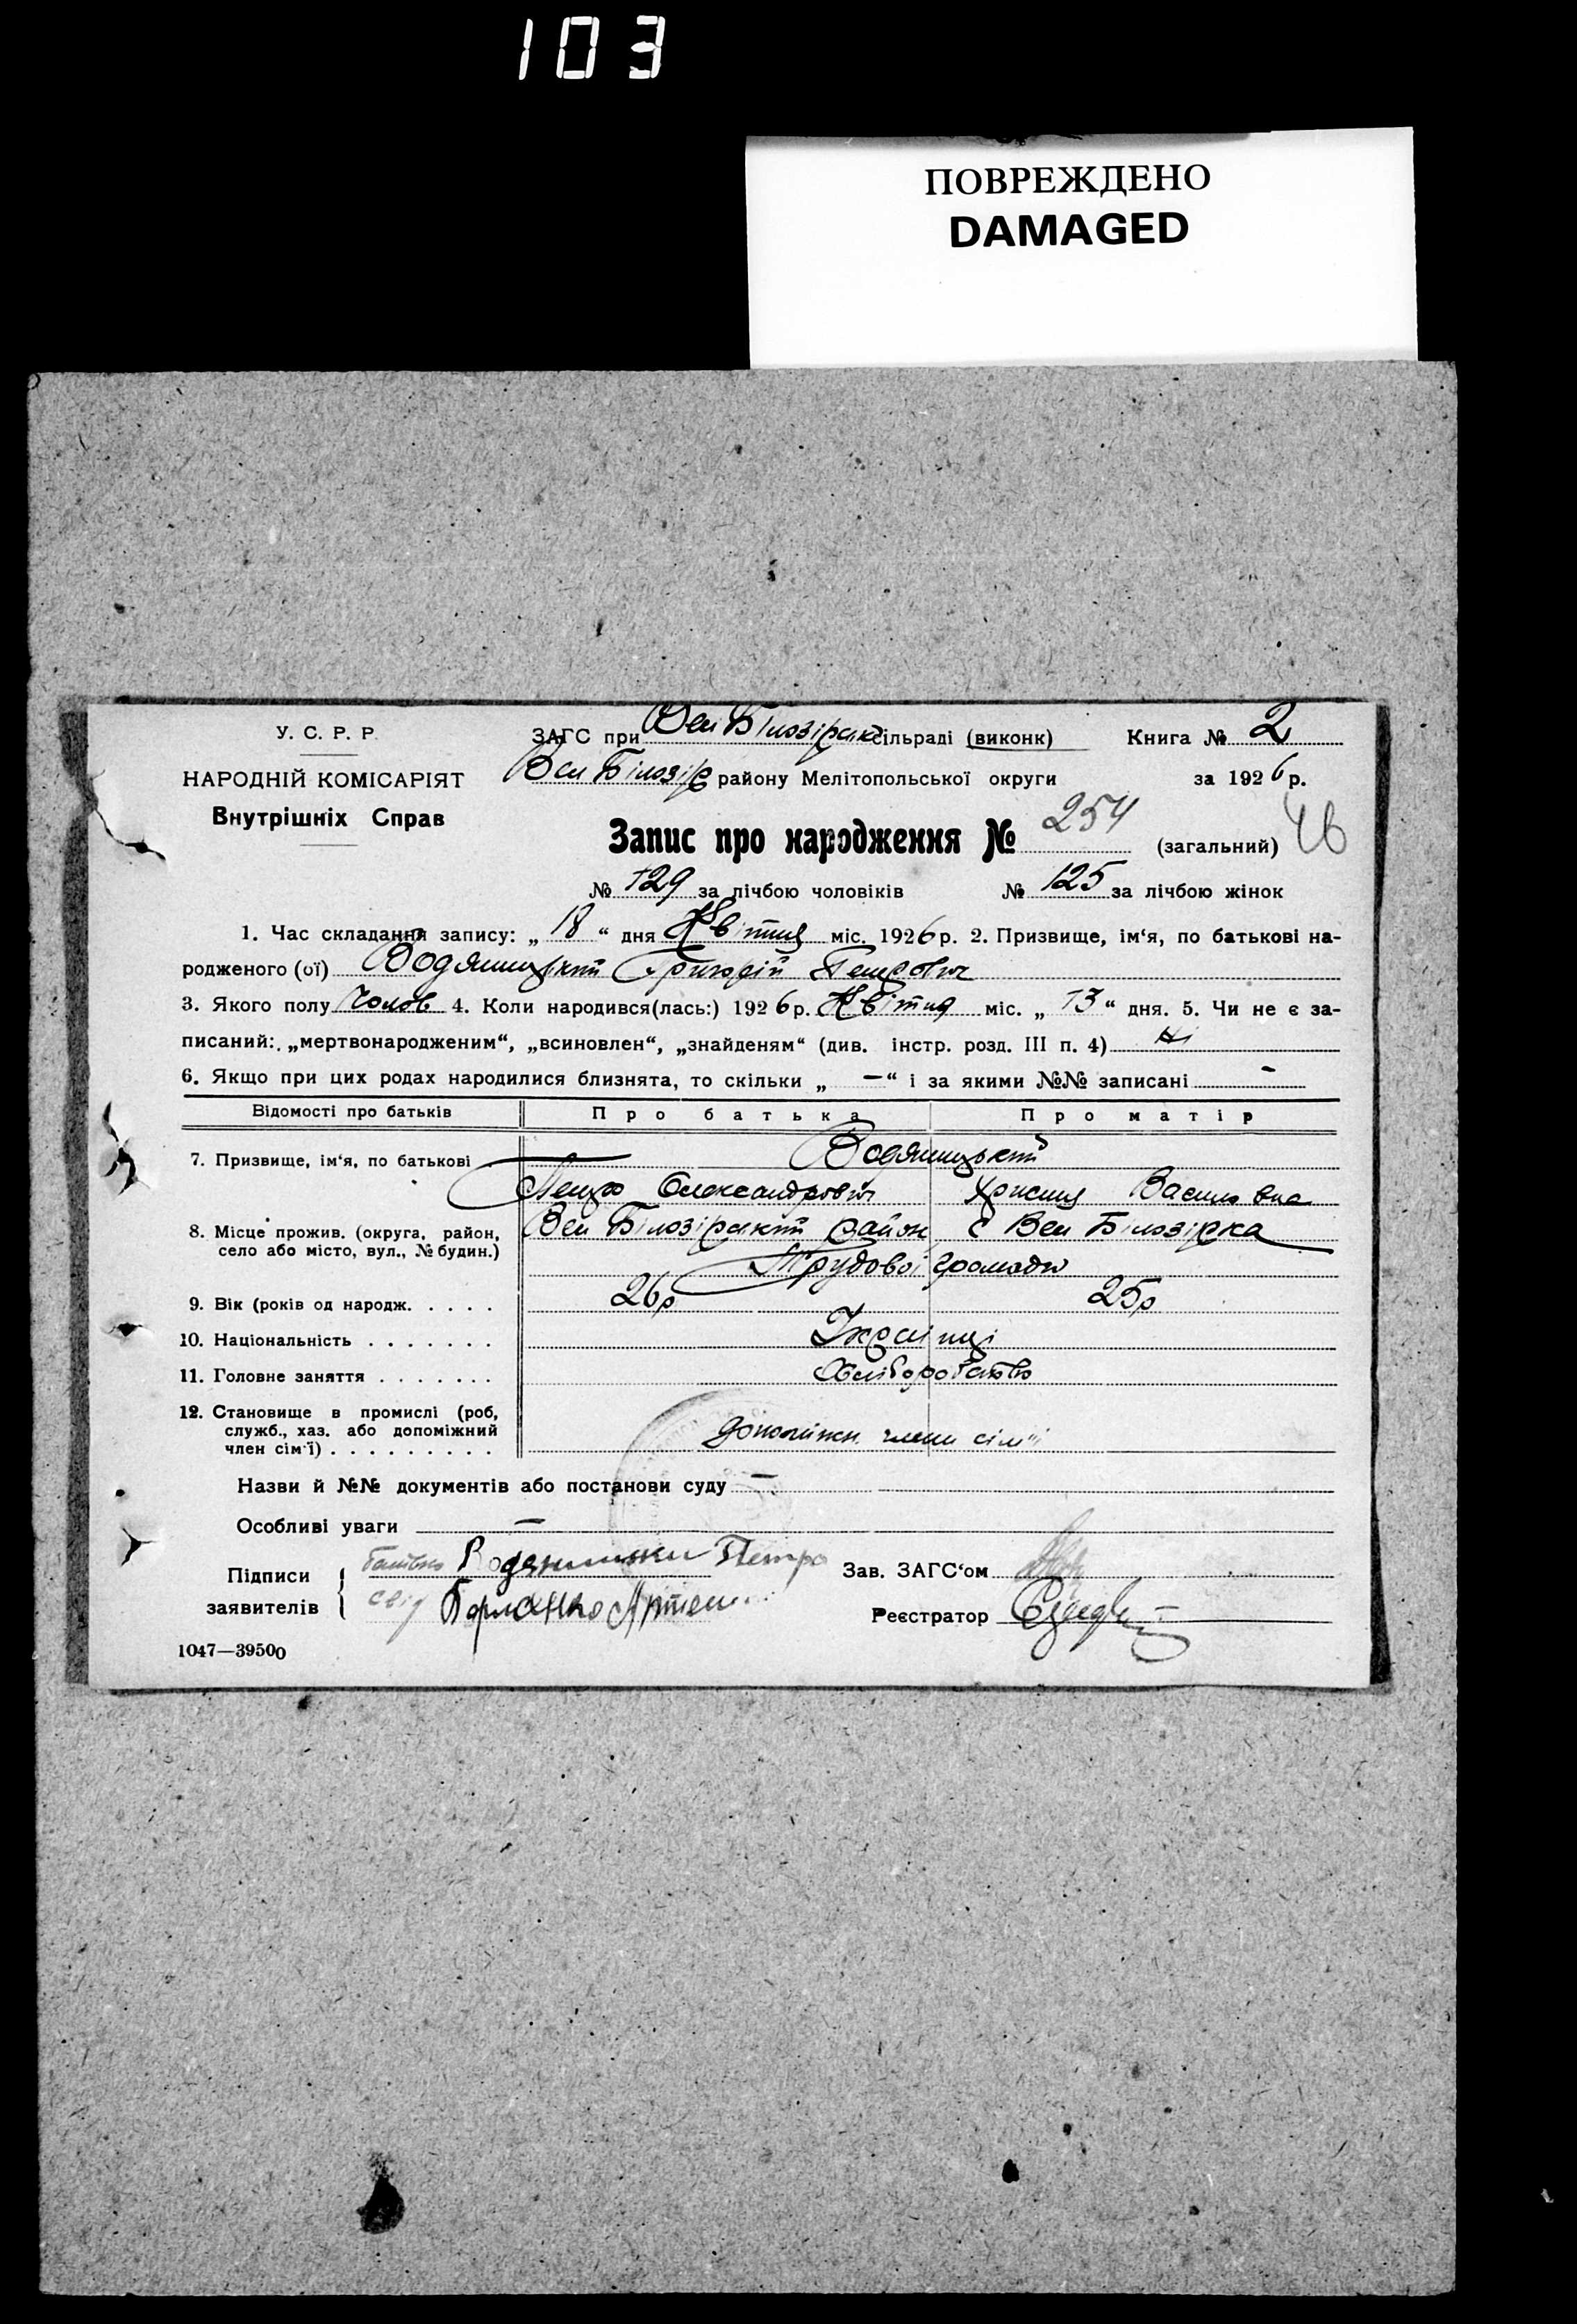 103
ПОВРЕЖДЕНО
DAMAGED
У. С. Р. Р.
НАРОДНІЙ КОМІСАРІЯТ
Внутрішніх Справ
ЗАГС при Вел Білозірській сільраді (виконк)
Вел Білозір району Мелітопольської округи
Книга № 2
за 1926 р.
Запис про народження № 254 (загальний) 46
№ 129 за лічбою чоловіків № 125 за лічбою жінок
1. Час складання запису: „ 18 “ дня Квітня міс. 1926 р. 2. Призвище, ім‘я, по батькові на-
родженого (ої) Водяницький Григорій Петрович
3. Якого полу Чолов 4. Коли народився(лась:) 1926 р. Квітня міс. „ 13 “ дня. 5. Чи не є за-
писаний: „мертвонародженим“, „всиновлен“, „знайденям“ (див. інстр. розд. III п. 4) Ні
6. Якщо при цих родах народилися близнята, то скільки „ — “ і за якими №№ записані -
Відомості про батьків Про батька Про матір
7. Призвище, ім‘я, по батькові Водяницький
Петро Олександрович Христия Василівна
8. Місце прожив. (округа, район, Вел Білозірський район с Вел Білозірка
село або місто, вул., № будин.)
Трудової громади
9. Вік (років од народж. . . . . 26р 25р
10. Національність . . . . . . . Українці
11. Головне заняття . . . . . . . Хліборобство
12. Становище в промислі (роб,
служб., хаз. або допоміжний
член сім‘ї) . . . . . . . . . допоміжн. члени сім"ї
Назви й №№ документів або постанови суду —
Особливі уваги —
Підписи
заявителів
батько Водяницки Петро
свід Артем
Зав. ЗАГС‘ом
Реєстратор
1047—39500